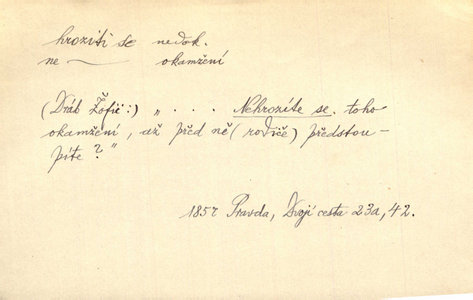 hroziti se nedok.
ne — okamžení
(Dráb Žofii:) „ . . . . Nehrozíte se toho
okamžení, až před ně (rodiče) předstou-
píte?"
1857 Pravda, Dvojí cesta 23a, 42.